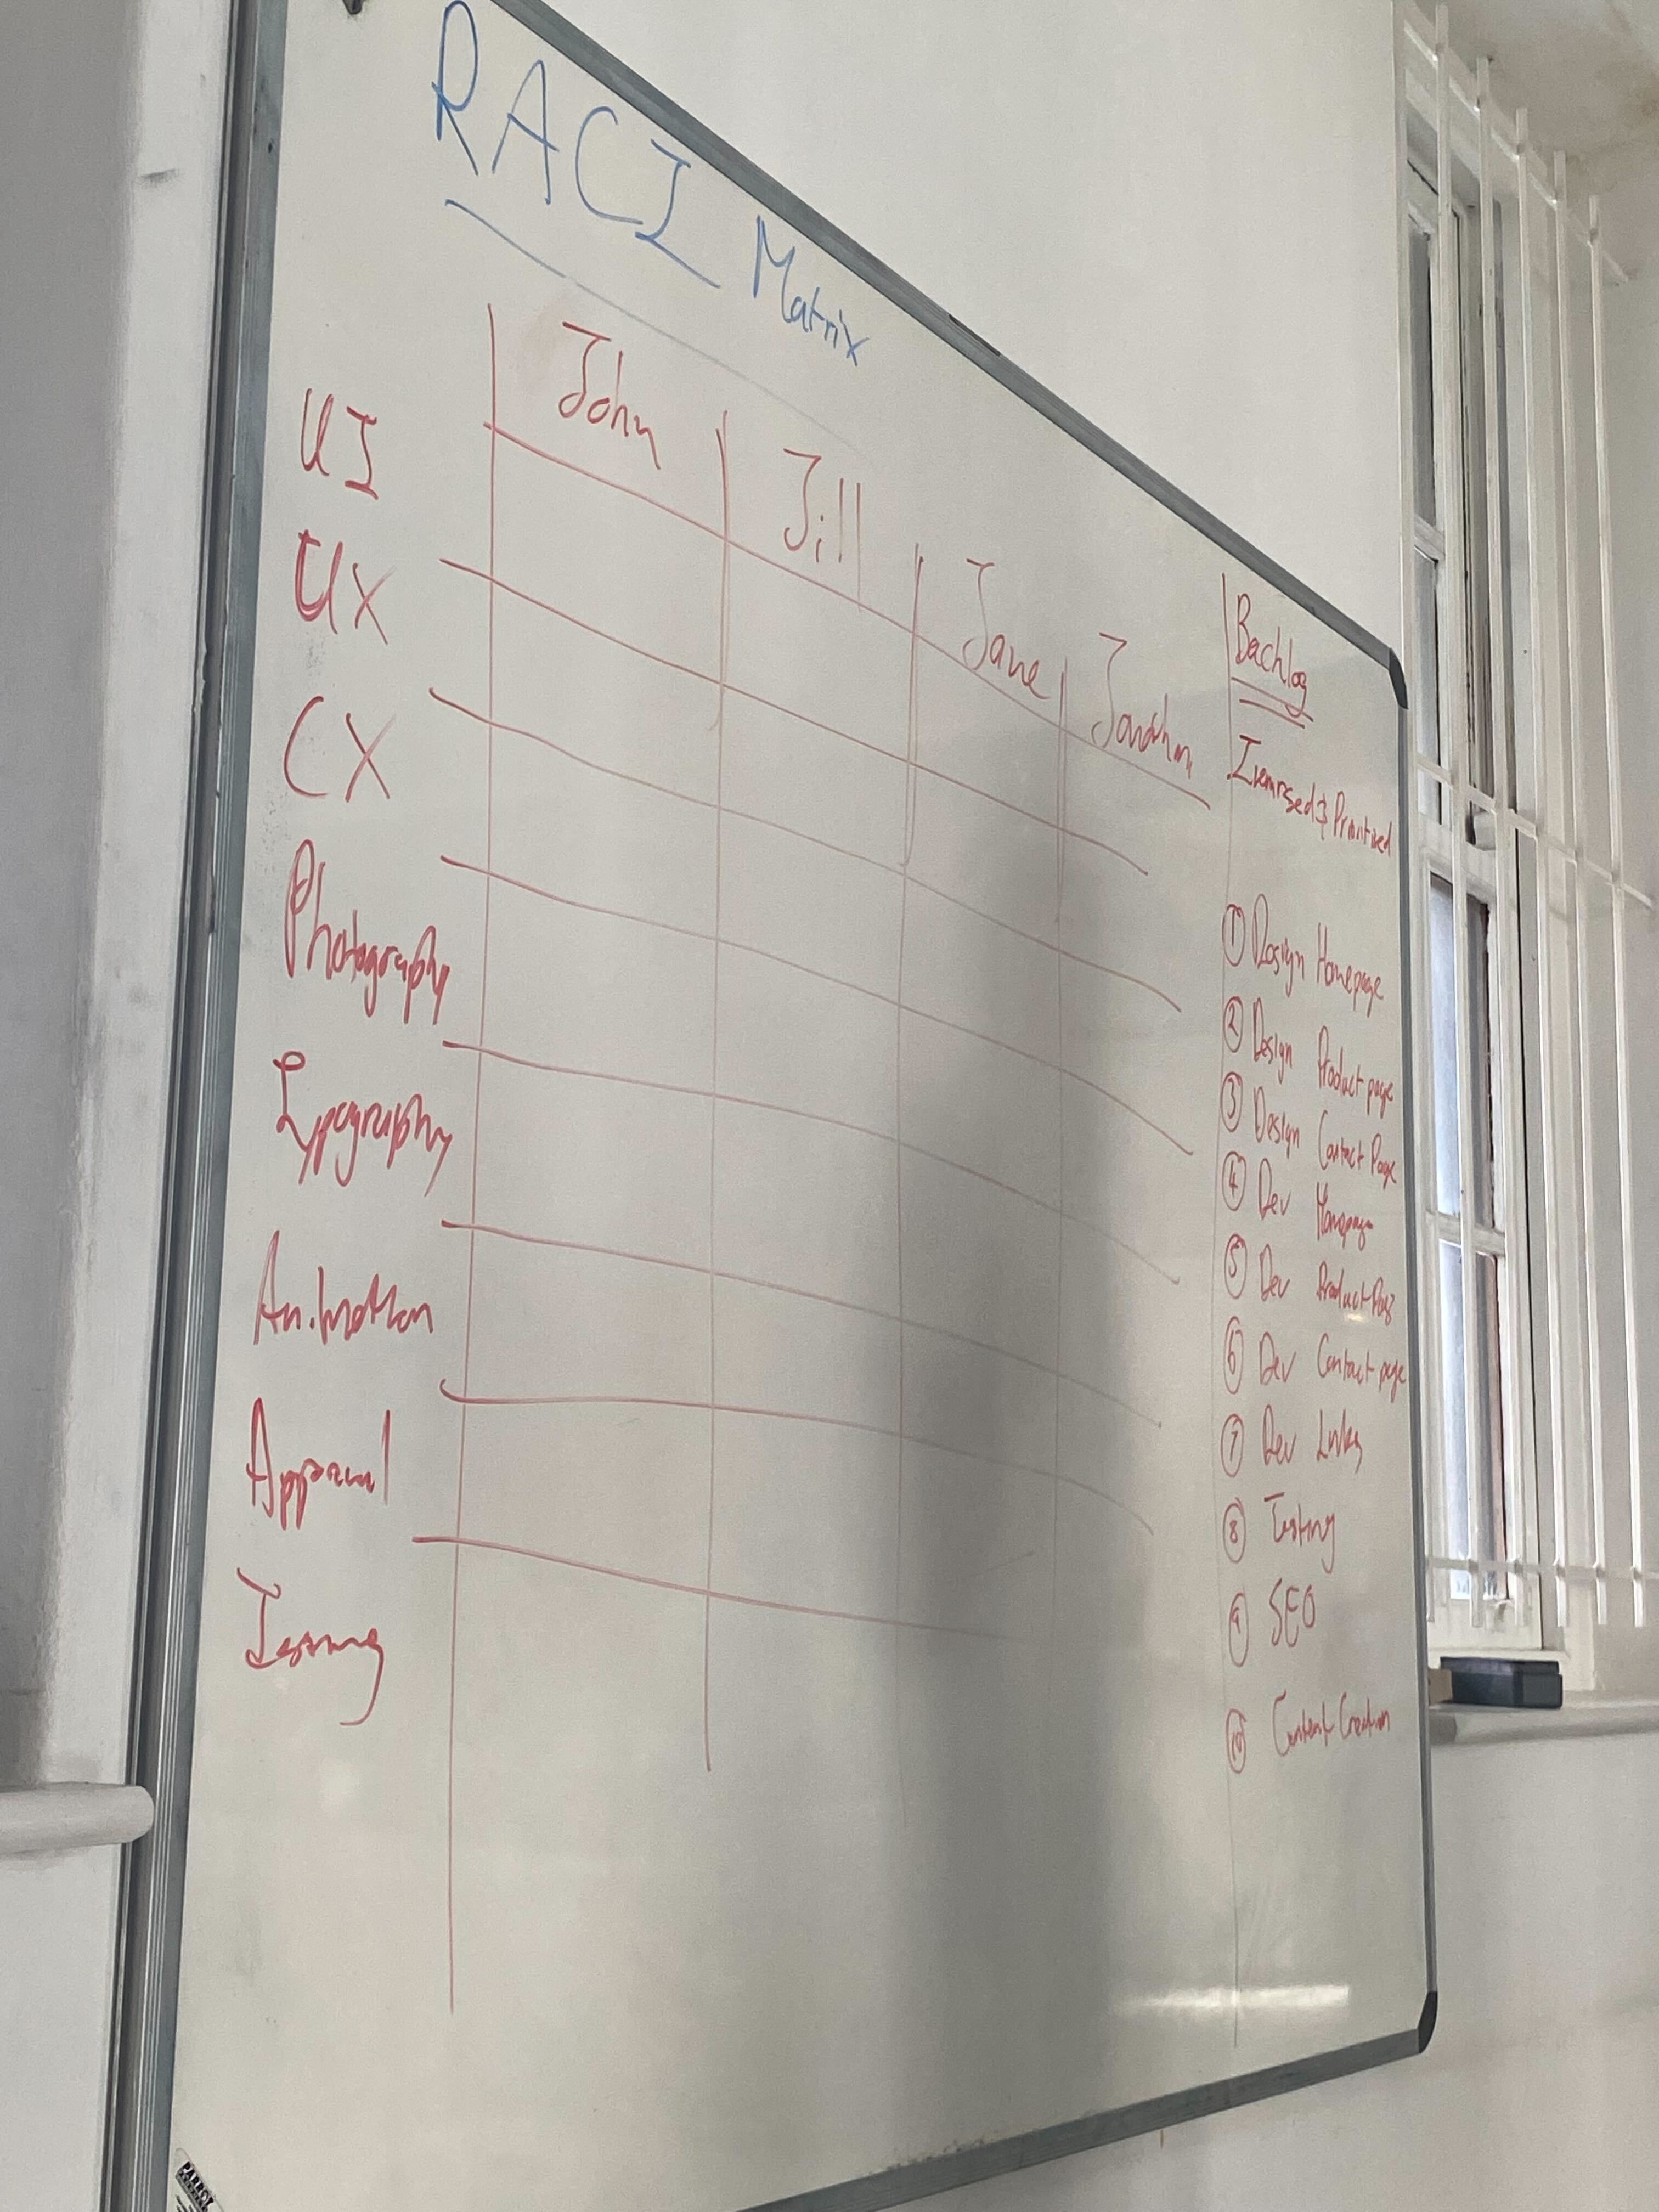 RACI Matrix
John
Jill
Jane
Jonathan
UI
UX
CX
Photography
Typography
Animation
Approval
Testing
Backlog
Itemised & Prioritised
① Design Homepage
② Design Product page
③ Design Contact Page
④ Dev Homepage
⑤ Dev Product Page
⑥ Dev Contact page
⑦ Dev Links
⑧ Testing
⑨ SEO
⑩ Content Creation
PARROT